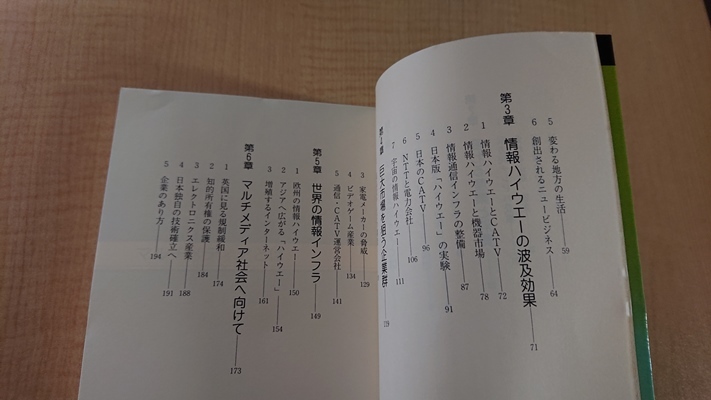 5 変わる地方の生活 59
6 創出されるニュービジネス 64
第3章 情報ハイウエーの波及効果 71
1 情報ハイウエーとCATV 72
2 情報ハイウエーと機器市場 78
3 情報通信インフラの整備 87
4 日本版「ハイウエー」の実験 91
5 日本のCATV 96
6 NTTと電力会社 106
7 宇宙の情報ハイウエー 111
第4章 巨大市場を狙う企業群 119
3 家電メーカーの脅威 129
4 ビデオゲーム産業 134
5 通信・CATV運営会社 141
第5章 世界の情報インフラ 149
1 欧州の情報ハイウエー 150
2 アジアへ広がる「ハイウエー」 154
3 増殖するインターネット 161
第6章 マルチメディア社会へ向けて 173
1 英国に見る規制緩和 174
2 知的所有権の保護 184
3 エレクトロニクス産業 188
4 日本独自の技術確立へ 191
5 企業のあり方 194